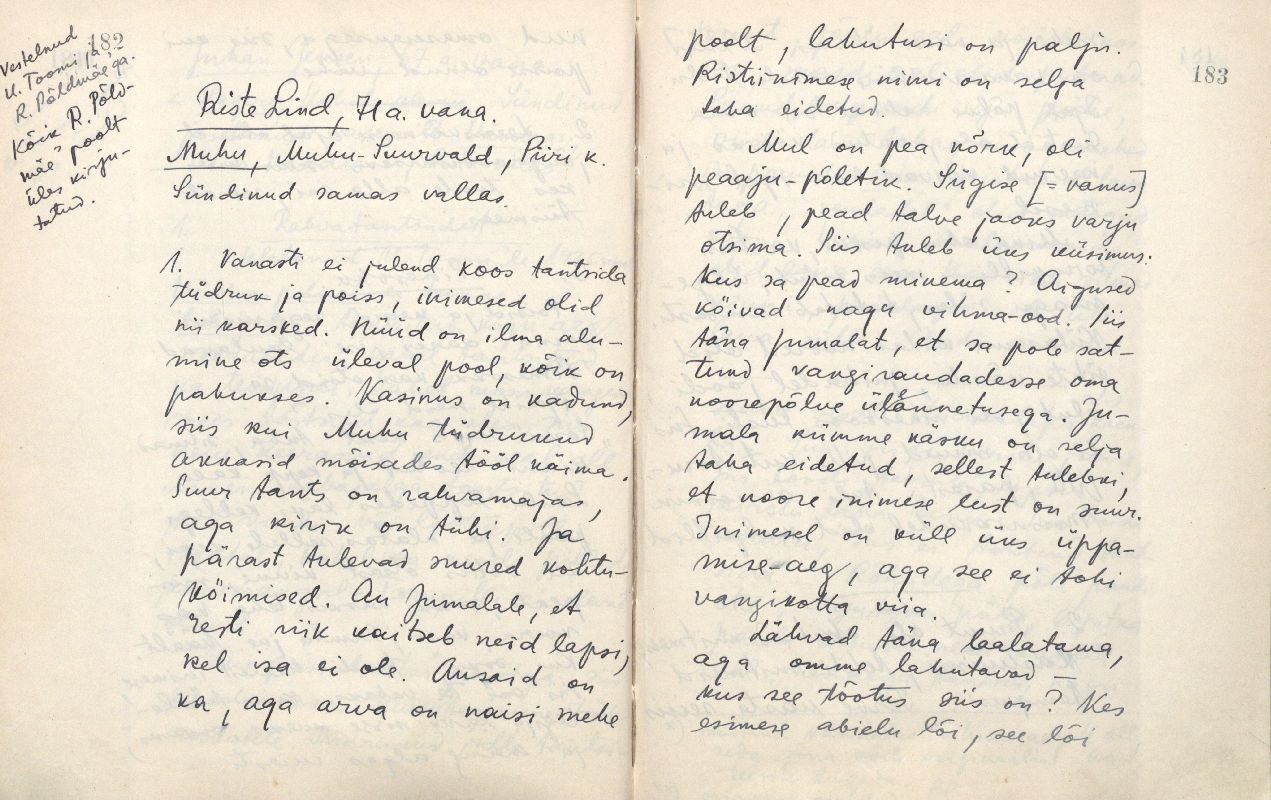 182
Vestelnud
U. Toomi ja
R. Põldmäega.
Kõik R. Põld-
mäe poolt
üles kirju-
tatud.
Riste Lind, 71 a. vana.
Muhu, Muhu-Suurvald, Piiri k.
Sündinud samas vallas.
1. Vanasti ei julend koos tantsida
tüdruk ja poiss, inimesed olid
nii karsked. Nüüd on ilma alu-
mine ots üleval pool, kõik on
pahukses. Kasinus on kadund,
siis kui Muhu tüdrukud
akkasid mõisades tööl käima.
Suur tants on rahvamajas,
aga kirik on tühi. Ja
pärast tulevad suured kohtu-
käimised. Au Jumalale, et
Eesti riik kaitseb neid lapsi,
kel isa ei ole. Ausaid on
ka, aga arva on naisi mehe
183
poolt, lahutusi on palju.
Ristiinimese nimi on selja
taha eidetud.
Mul on pea nõrk, oli
peaaju-põletik. Sügise [= vanus]
tuleb, pead talve jaoks varju
otsima. Siis tuleb üks küsimus.
Kus sa pead minema? Aigused
käivad nagu vihma-ood. Siis
täna Jumalat, et sa pole sat-
tund vangiraudadesse oma
noorepõlve üleannetusega. Ju-
mala kümme käsku on selja
taha eidetud, sellest tulebki,
et noore inimese lust on suur.
Inimesel on küll üks üppa-
mise-aeg, aga see ei tohi
vangikotta viia.
Lähvad täna laalatama,
aga omme lahutavad –
kus see tõotus siis on? Kes
esimese abielu lõi, see lõi